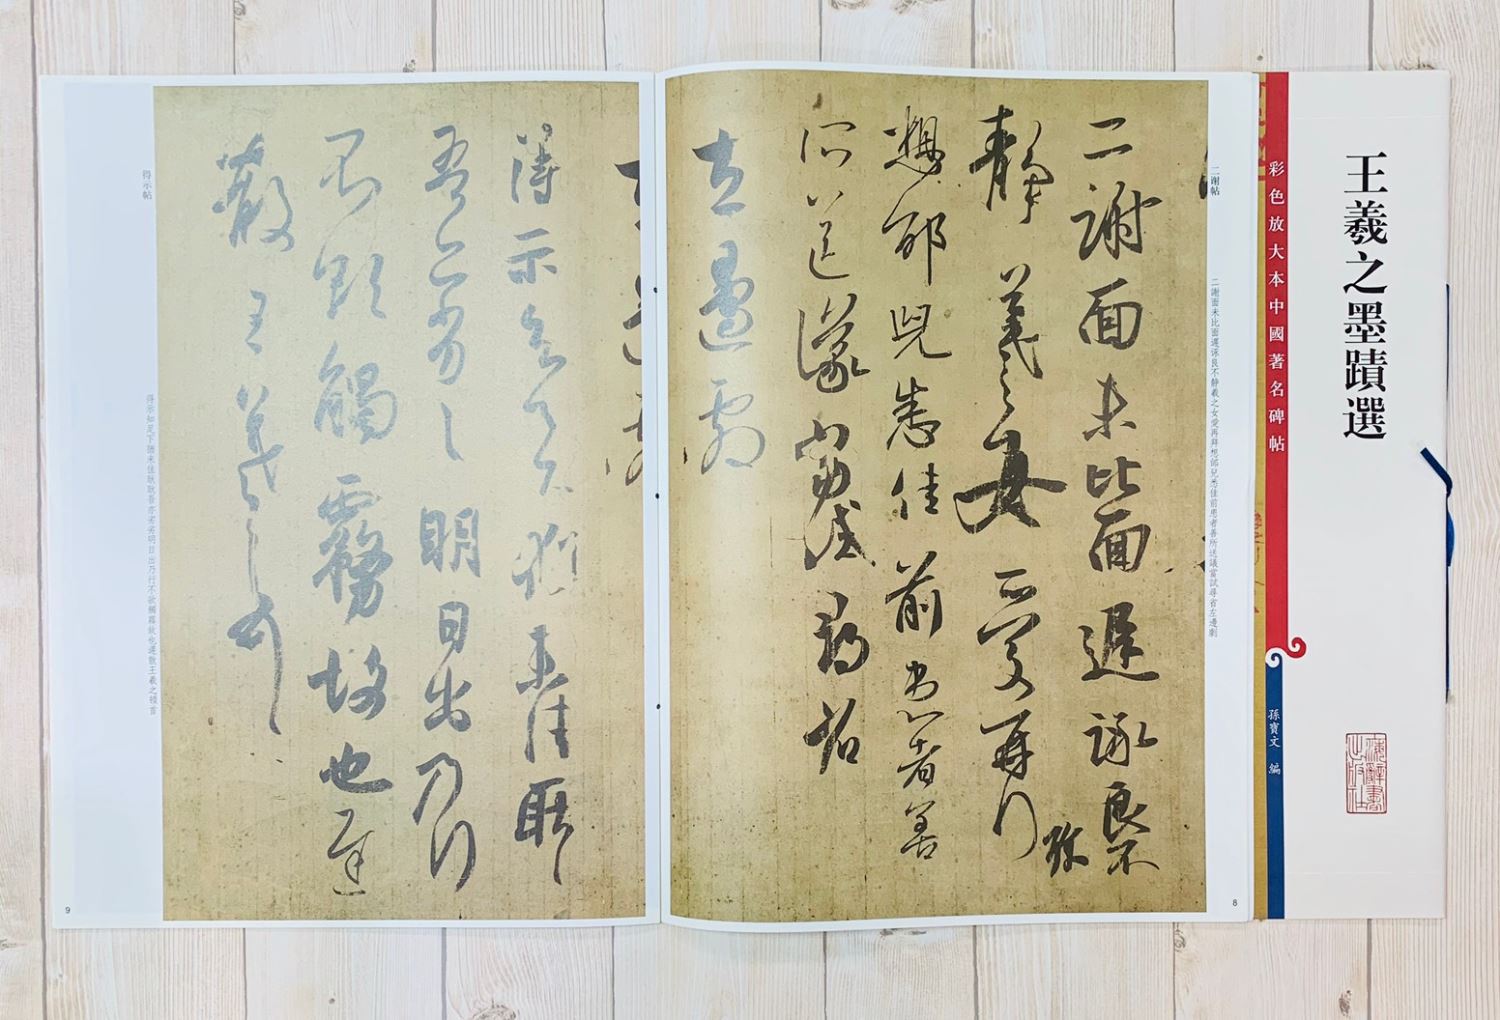 王羲之墨蹟選
上海辭書出版社
彩色放大本中國著名碑帖
孫寶文 編
二谢帖
二謝面未比面遲詠良不靜羲之女愛再拜想邰兒悉佳前患者善所送議當試尋省左邊劇
二謝面未比面遲詠良不
靜羲之女愛再拜
珍
想邰兒悉佳前患者善
所送議當試尋省
左邊劇
8
得示知足下猶未佳耿
吾亦劣劣明日出乃行
不欲觸霧故也遲
散王羲之頓首
得示帖
得示知足下猶未佳耿耿吾亦劣劣明日出乃行不欲觸霧故也遲散王羲之頓首
9